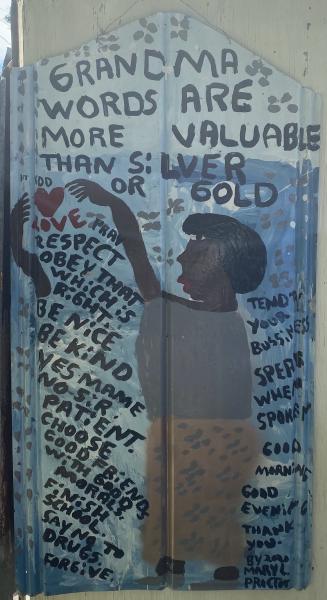 GRANDMA
WORDS ARE
MORE VALUABLE
THAN SILVER
OR GOLD
GOD
LOVE PRAY
RESPECT
OBEY THAT
WHICH IS
RIGHT.
BE NICE
BE KIND
YES MAME
NO SIR.
PATIENT.
CHOOSE
GOOD FRIENDS
WITH GOOD
MORALS.
FINISH
SCHOOL.
SAY NO TO
DRUGS
FORGIVE.
TEND TO
YOUR
BUSSINESS
SPEAK
WHEN
SPOKEN
GOOD
MORNING
GOOD
EVENING
THANK
YOU.
BY 2020
MARY L
PROCTOR